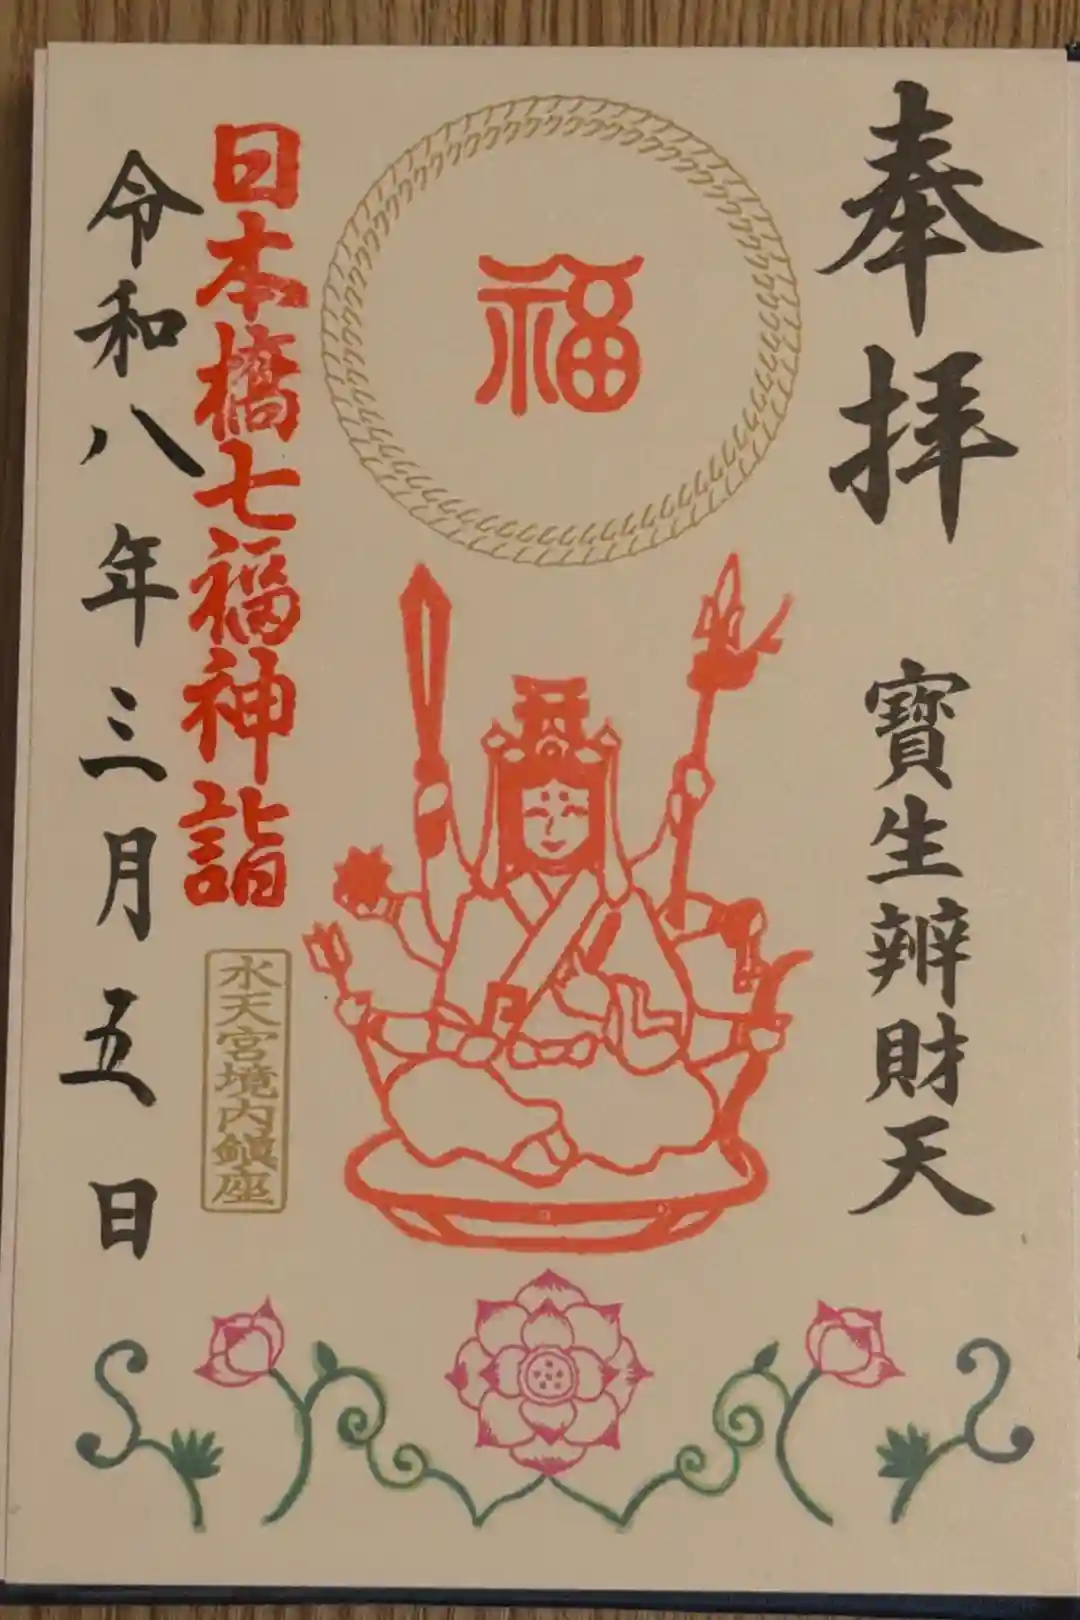 奉拝
寶生辨財天
福
日本橋七福神詣
水天宮境内鎮座
令和八年三月五日